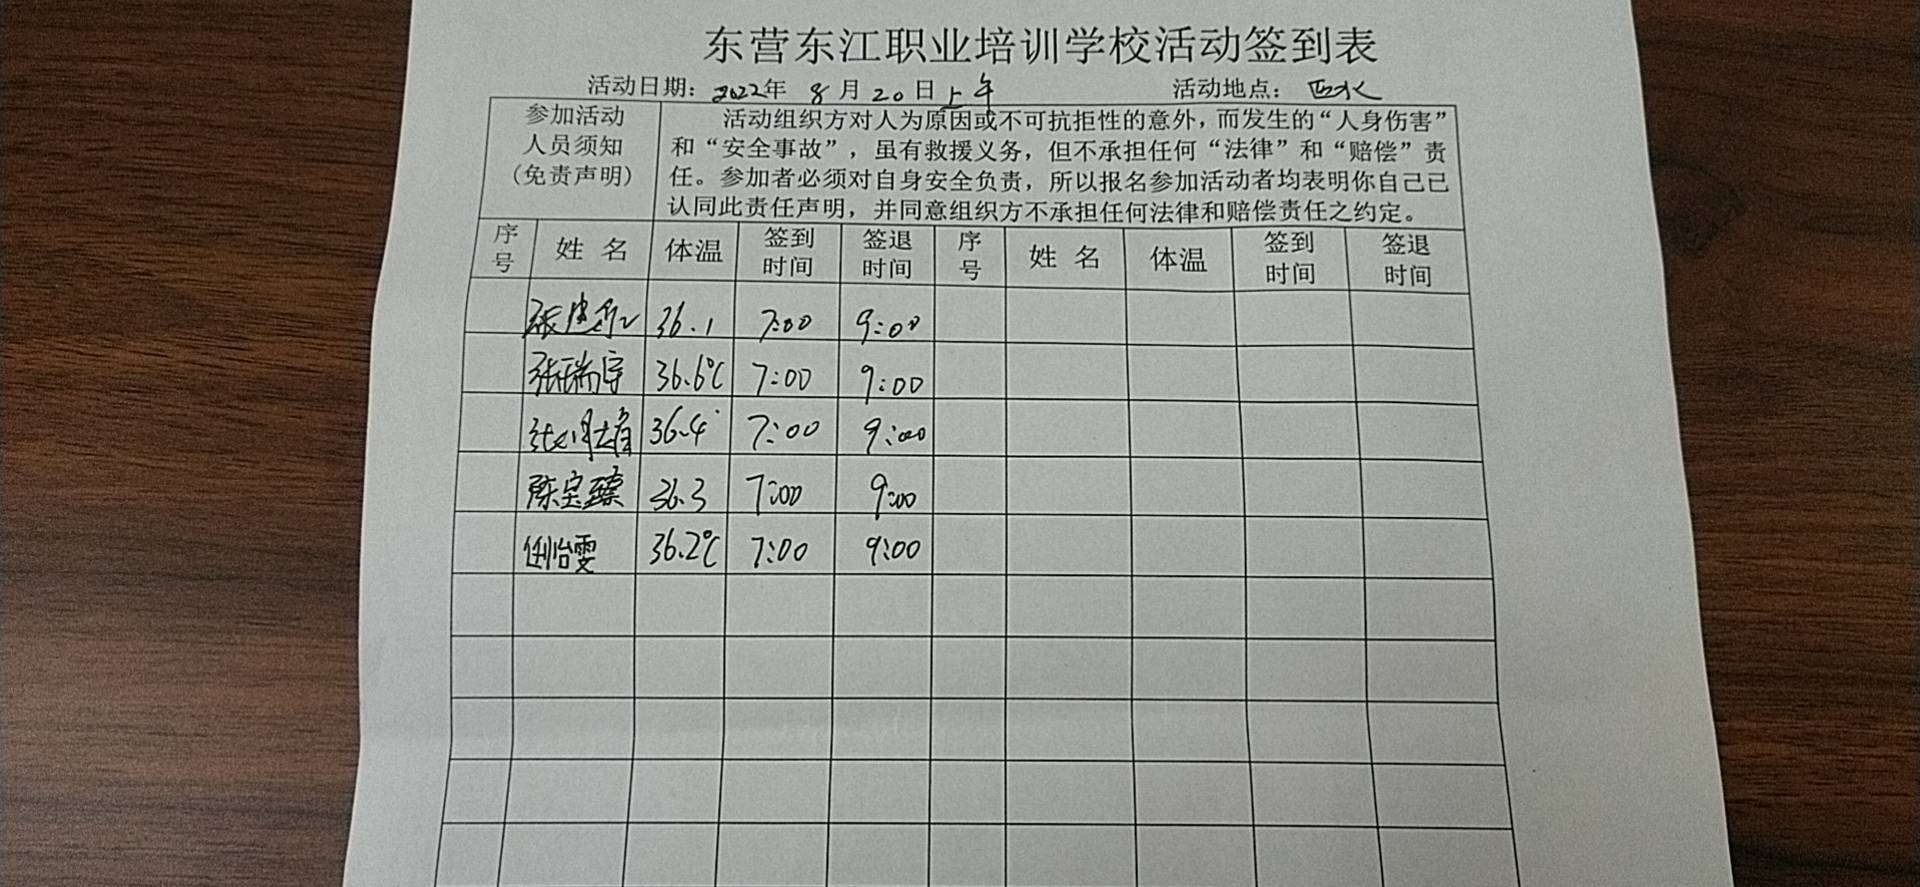 东营东江职业培训学校活动签到表
活动日期：2022年 8月20日上午 活动地点：西水
参加活动人员须知（免责声明）
活动组织方对人为原因或不可抗拒性的意外，而发生的“人身伤害”
和“安全事故”，虽有救援义务，但不承担任何“法律”和“赔偿”责
任。参加者必须对自身安全负责，所以报名参加活动者均表明你自己已
认同此责任声明，并同意组织方不承担任何法律和赔偿责任之约定。
序号 姓名 体温 签到时间 签退时间 序号 姓名 体温 签到时间 签退时间
张 36.1 7:00 9:00
张瑞宇 36.6℃ 7:00 9:00
张 36.4° 7:00 9:00
陈宝臻 36.3 7:00 9:00
任怡雯 36.2℃ 7:00 9:00